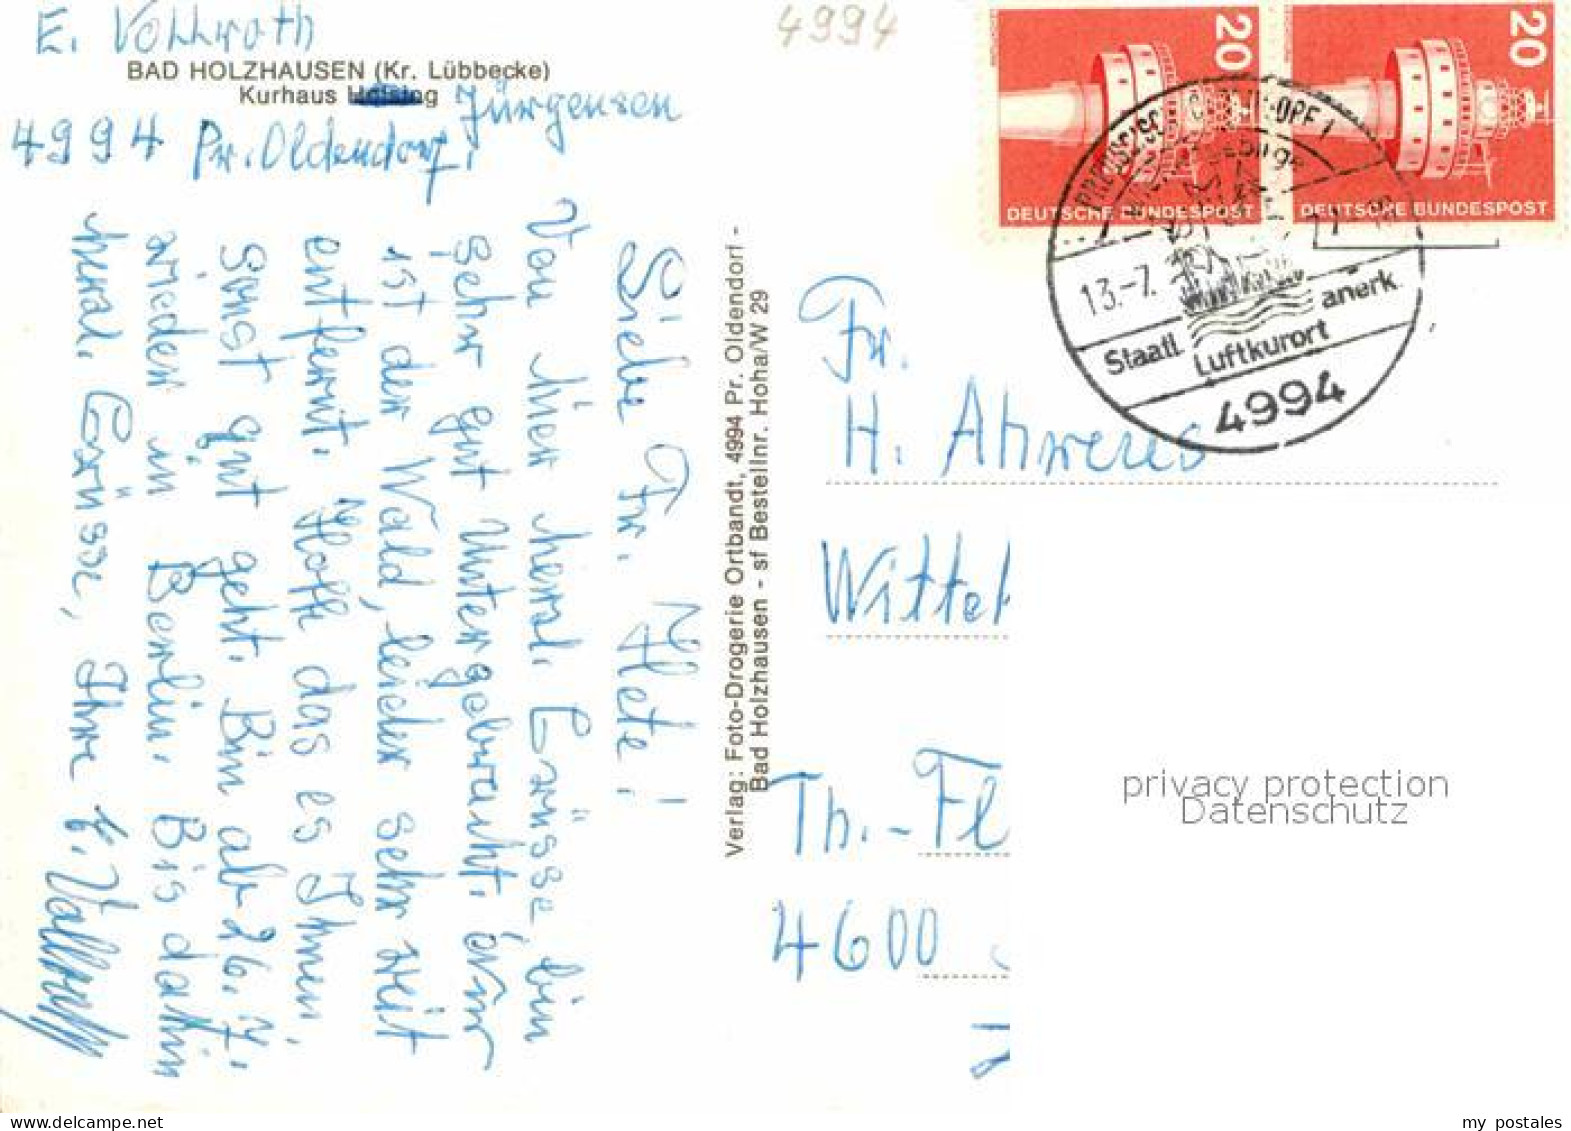 E. Vollroth
BAD HOLZHAUSEN (Kr. Lübbecke)
Kurhaus Holsing
Jürgensen
4994 Pr. Oldendorf.
Liebe Fr. Hete!
Von hier herzl. Grüsse, bin
sehr gut untergebracht. nur
ist der Wald, leider sehr weit
entfernt. Hoffe das es Ihnen,
sonst gut geht. Bin ab 26.7.
wieder in Berlin. Bis dahin
herzl. Grüsse, Ihre E. Vollroth
Verlag: Foto-Drogerie Ortbandt, 4994 Pr. Oldendorf -
Bad Holzhausen - sf Bestellnr. Hoha/W 29
4994
20
DEUTSCHE BUNDESPOST
20
DEUTSCHE BUNDESPOST
13.-7.
Staatl. anerk.
Luftkurort
4994
Fr.
H. Ahweres
Witte
Th.-Fl
4600
privacy protection
Datenschutz
my_postales